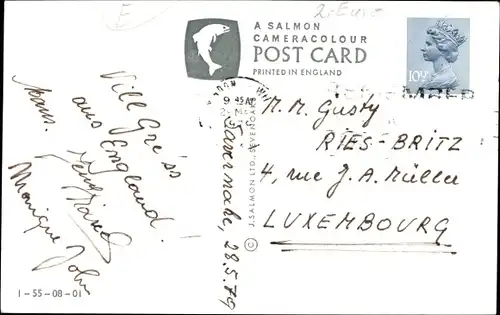 E
2.- Euro
A SALMON
CAMERACOLOUR
POST CARD
PRINTED IN ENGLAND
10½P
9 45 AM
Vill Gré'ss
aus England.
Monique John
Tavernake, 28.5.79
J. SALMON LTD., SEVENOAKS ©
M. M. Gusty
RIES-BRITZ
4, rue J. A. Müller
LUXEMBOURG
1-55-08-01